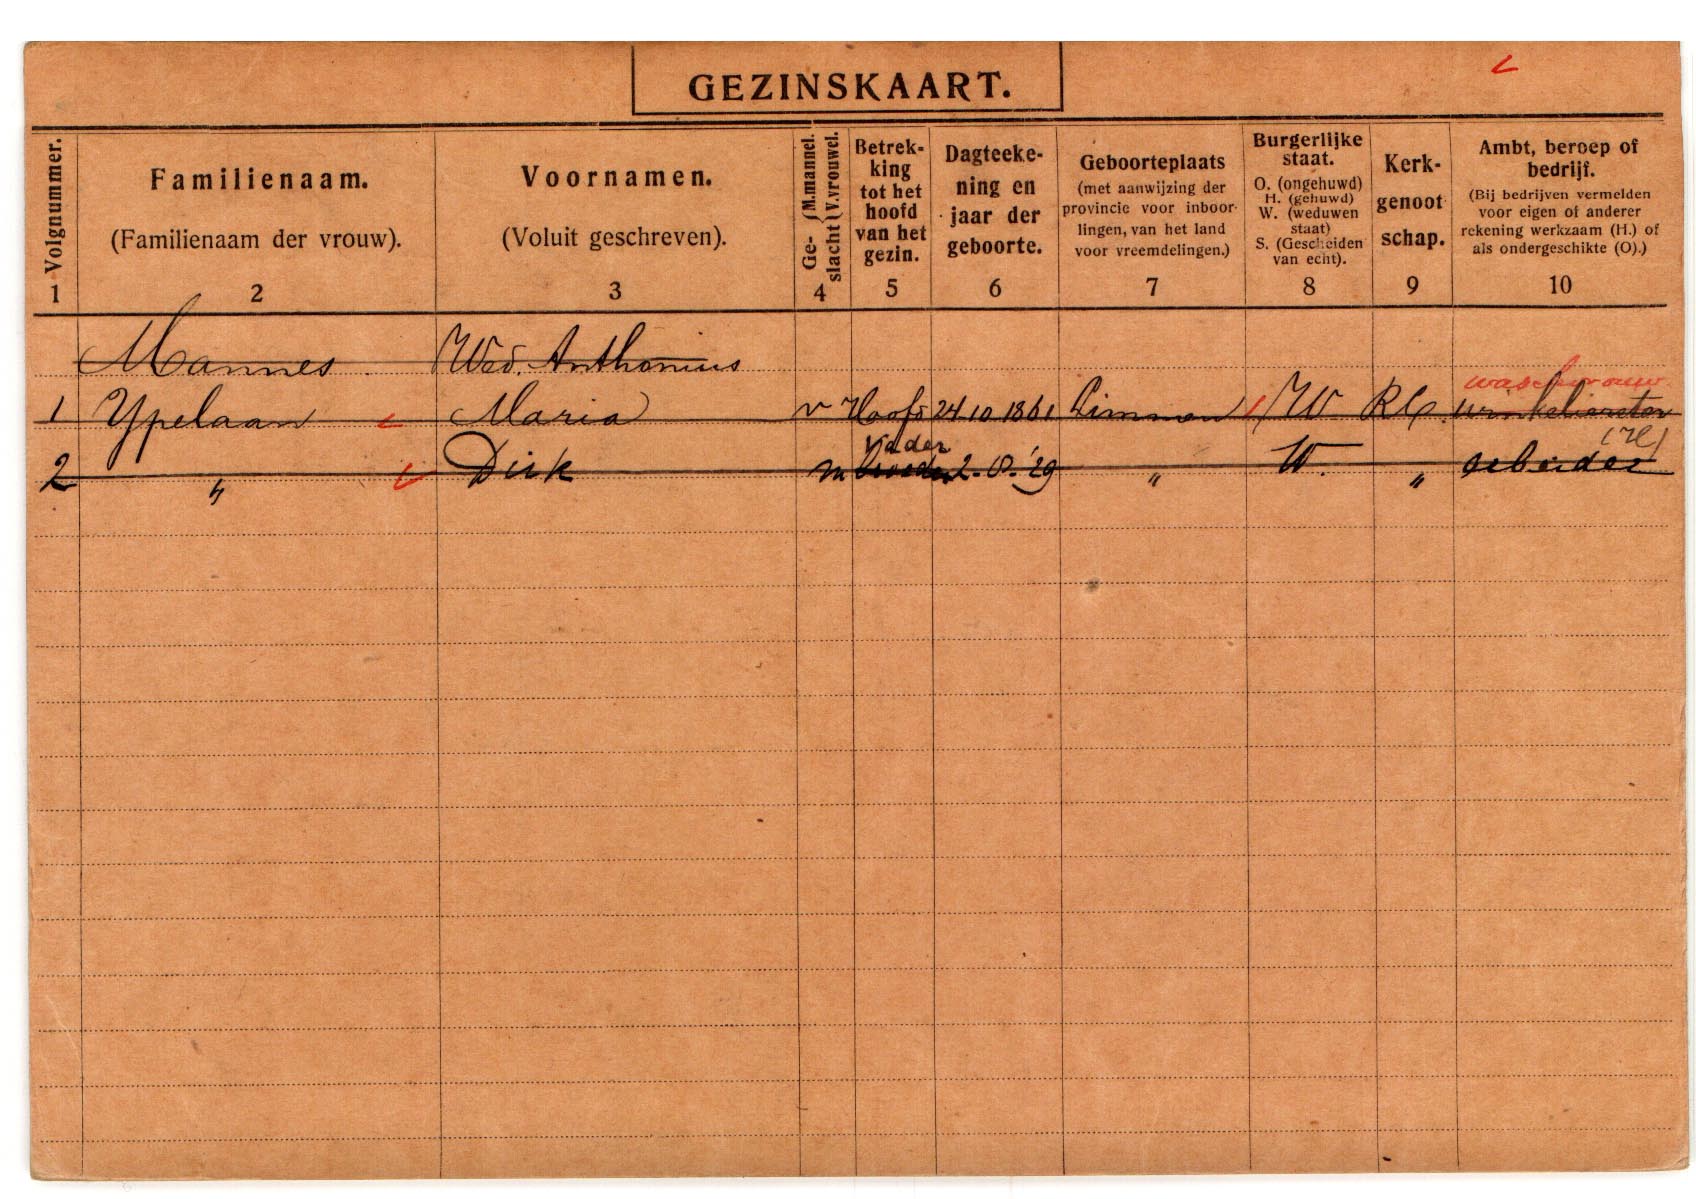 GEZINSKAART.
Volgnummer.
1
Familienaam.
(Familienaam der vrouw).
2
Voornamen.
(Voluit geschreven).
3
Ge-slacht { M. mannel. V. vrouwel.
4
Betrek-
king
tot het
hoofd
van het
gezin.
5
Dagteeke-
ning en
jaar der
geboorte.
6
Geboorteplaats
(met aanwijzing der
provincie voor inboor-
lingen, van het land
voor vreemdelingen.)
7
Burgerlijke
staat.
O. (ongehuwd)
H. (gehuwd)
W. (weduwen
staat)
S. (Gescheiden
van echt).
8
Kerk-
genoot
schap.
9
Ambt, beroep of
bedrijf.
(Bij bedrijven vermelden
voor eigen of anderer
rekening werkzaam (H.) of
als ondergeschikte (O).)
10
Mannes Wed. Anthonius
waschvrouw
1 Ypelaan Maria v Hoofd 24.10.1861 Limmen W RC winkelierster
(H)
Vader
2 " Dirk m '29 " W. " arbeider